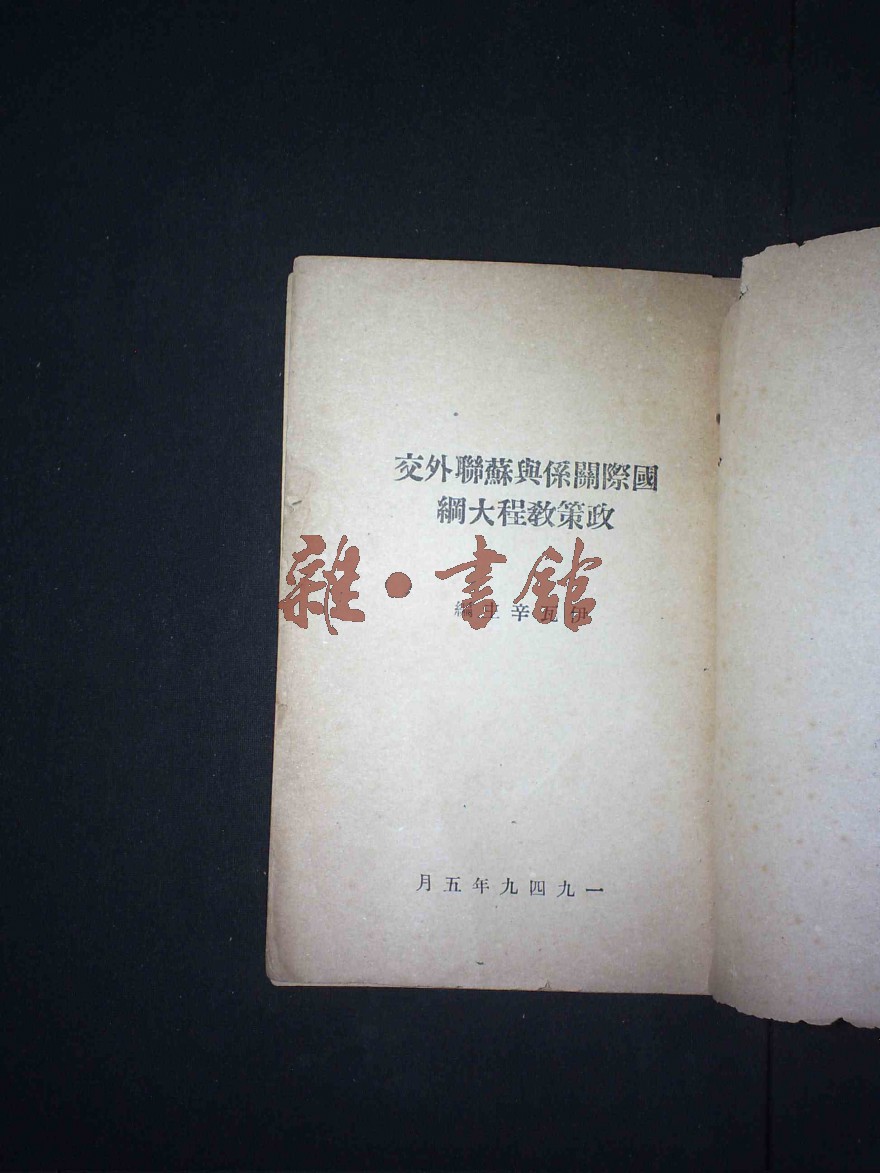 國際關係與蘇聯外交
政策教程大綱
雜·書館
伊瓦辛主編
一九四九年五月